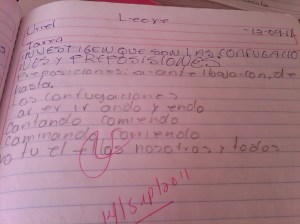 Uriel Leeye
Tarea 12-09-11
INVESTIGEN QUE SON LAS CONJUGACIO
NES Y PREPOSISIONES
Preposiciones a, ante bajo, con, de
hasta.
Los conjugaciones
ar, er ir ando y endo
Cantando comiendo
caminando corriendo
yo tu el ellos nosotros y todos
14/sep/2011